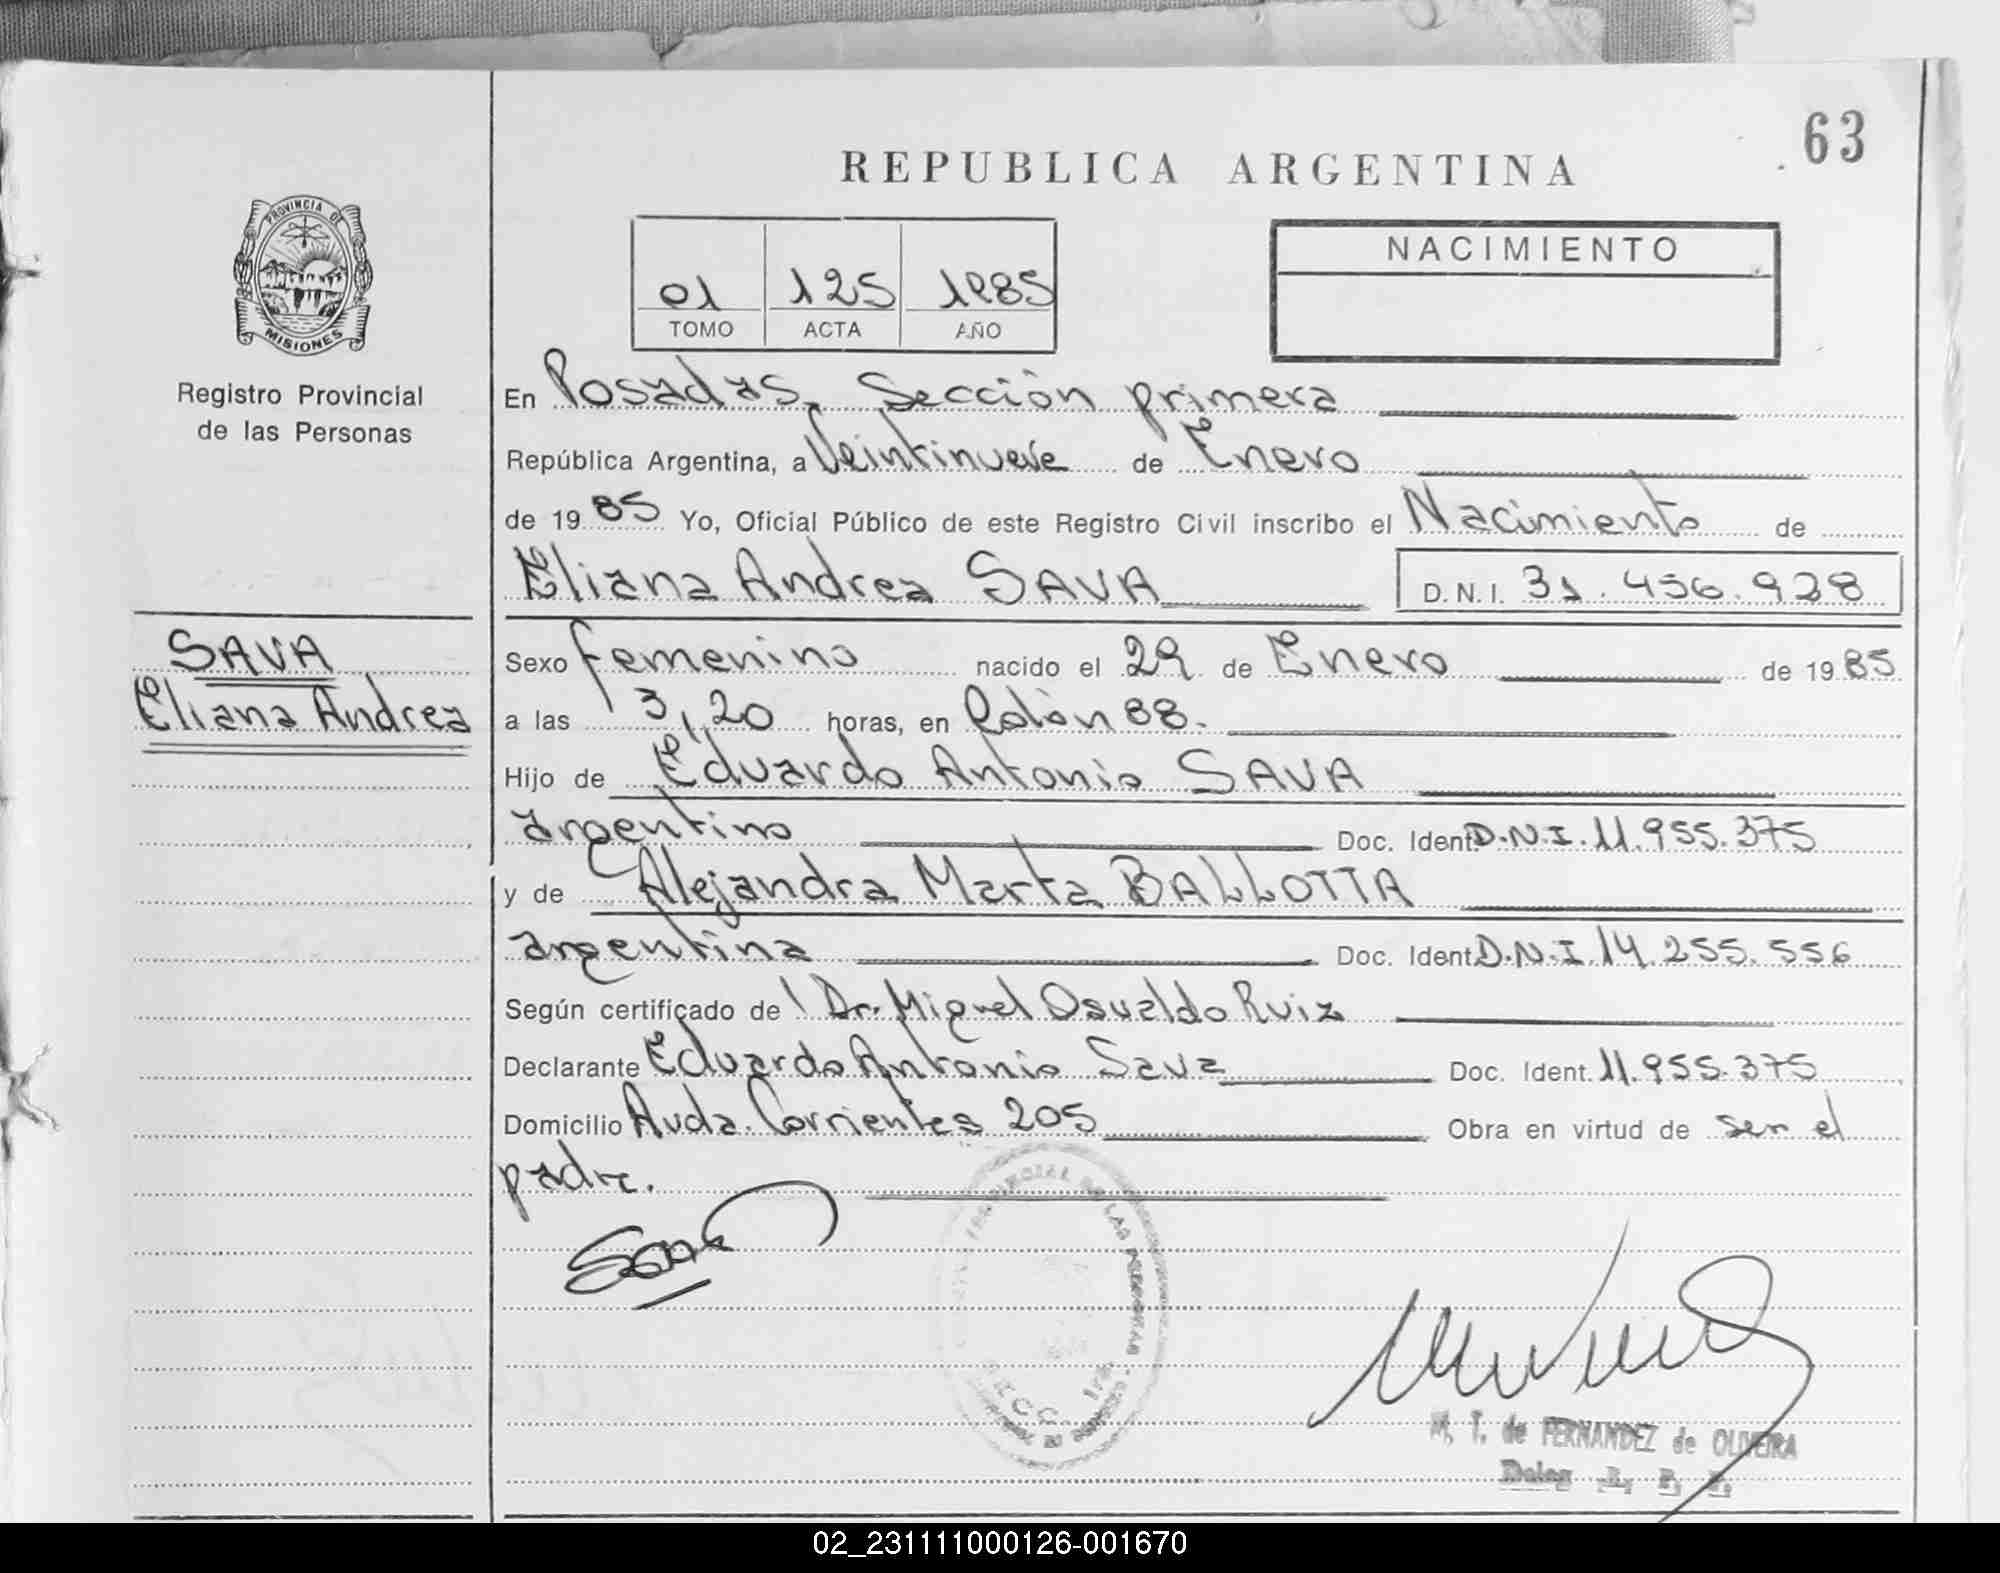 63
REPUBLICA ARGENTINA
PROVINCIA DE
MISIONES
Registro Provincial
de las Personas
01 125 1985
TOMO ACTA AÑO
NACIMIENTO
En Posadas, Sección primera
República Argentina, a Veintinueve de Enero
de 1985 Yo, Oficial Público de este Registro Civil inscribo el Nacimiento de
Eliana Andrea SAVA D.N.I. 31.456.928
SAVA
Eliana Andrea
Sexo femenino nacido el 29 de Enero de 1985
a las 3,20 horas, en Colón 88.
Hijo de Eduardo Antonio SAVA
argentino Doc. Ident. D.N.I. 11.955.375
y de Alejandra Marta BALLOTTA
argentina Doc. Ident. D.N.I. 14.255.556
Según certificado de Dr. Miguel Osvaldo Ruiz
Declarante Eduardo Antonio Sava Doc. Ident. 11.955.375
Domicilio Avda. Corrientes 205 Obra en virtud de ser el
padre.
M. T. de FERNANDEZ de OLIVEIRA
02_231111000126-001670